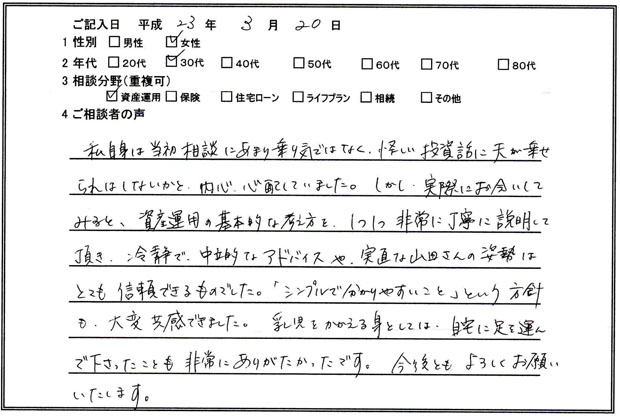 ご記入日 平成 23 年 3 月 20 日
1 性別 □男性 ☑女性
2 年代 □20代 ☑30代 □40代 □50代 □60代 □70代 □80代
3 相談分野(重複可)
☑資産運用 □保険 □住宅ローン □ライフプラン □相続 □その他
4 ご相談者の声
私自身は当初相談にあまり乗り気ではなく、怪しい投資話に夫が乗せ
られはしないかと、内心、心配していました。しかし、実際にお会いして
みると、資産運用の基本的な考え方を、1つ1つ非常に丁寧に説明して
頂き、冷静で、中立的なアドバイスや、実直な山田さんの姿勢は
とても信頼できるものでした。「シンプルで分かりやすいこと」という方針
も、大変共感できました。 乳児をかかえる身としては、自宅に足を運ん
で下さったことも非常にありがたかったです。 今後ともよろしくお願い
いたします。